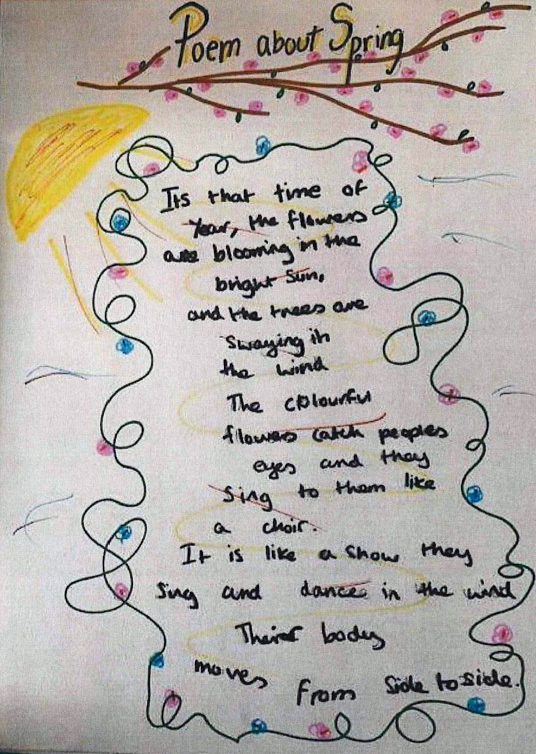 Poem about Spring
Its that time of
Year, the flowers
are blooming in the
bright sun,
and the trees are
Swaying in
the wind
The colourful
flowers catch peoples
eyes and they
Sing to them like
a choir.
It is like a show they
Sing and dance in the wind
Their body
moves
from side to side.